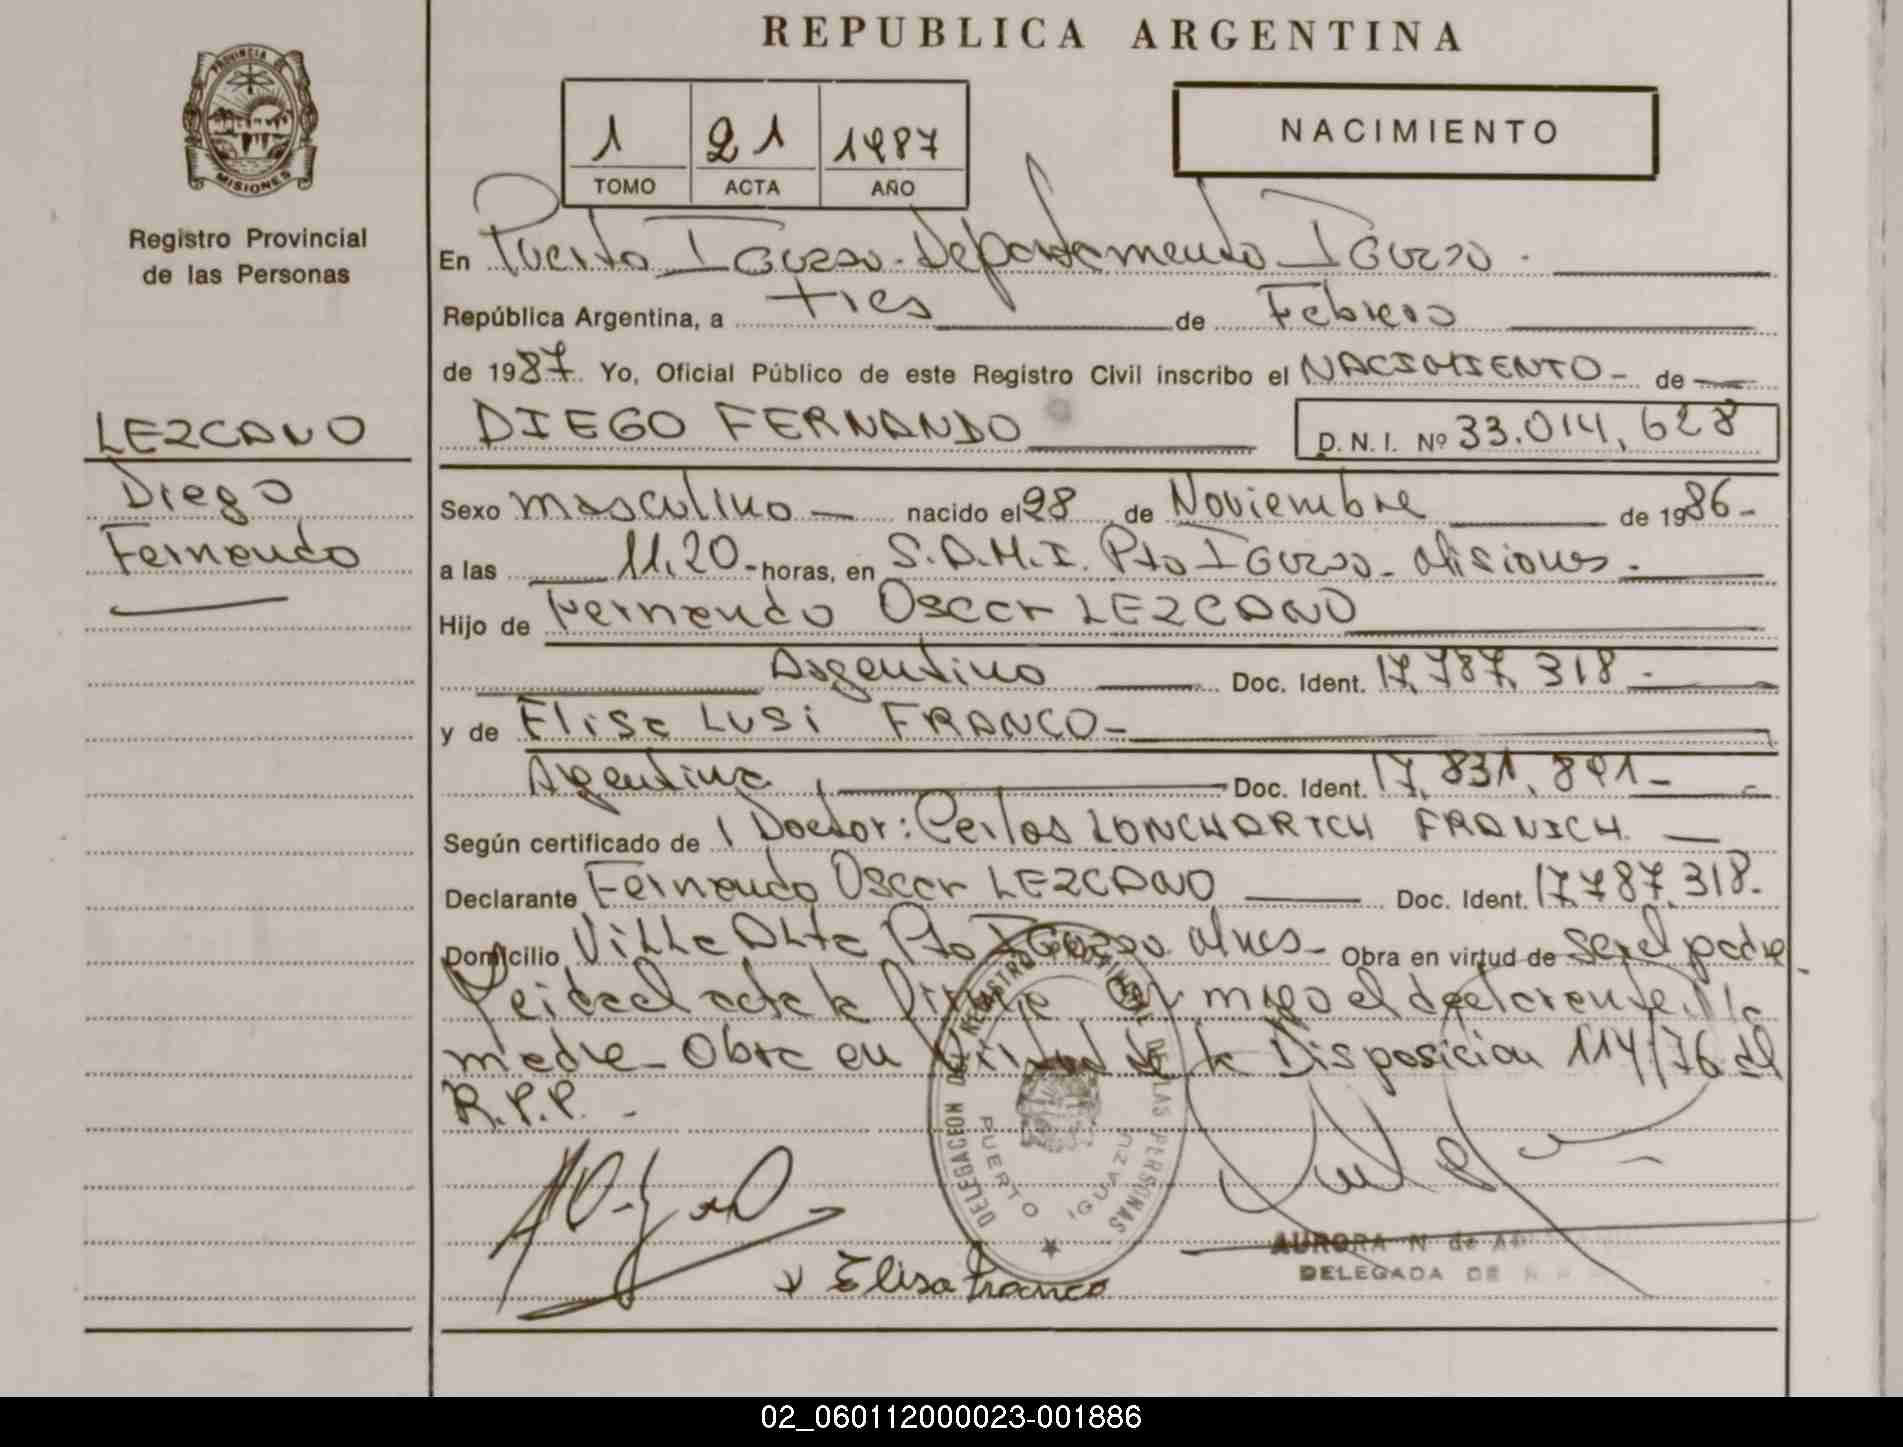 REPUBLICA ARGENTINA
PROVINCIA DE MISIONES
Registro Provincial
de las Personas
1 21 1987
TOMO ACTA AÑO
NACIMIENTO
En Puerto Iguazu. Departamento Iguazu.
República Argentina, a tres de Febrero
de 1987. Yo, Oficial Público de este Registro Civil inscribo el NACIMIENTO - de
LEZCANO
Diego
Fernando
DIEGO FERNANDO D.N.I. Nº 33.014.628
Sexo masculino nacido el 28 de Noviembre de 1986-
a las 11.20 - horas, en S.A.M.I. Pto Iguazu - Misiones.
Hijo de Fernando Oscar LEZCANO
Argentino Doc. Ident. 17.787.318 -
y de Elisa LUSI FRANCO -
Argentina Doc. Ident. 17.831.891 -
Según certificado de Doctor: Carlos LONCHARICH FRANICH.
Declarante Fernando Oscar LEZCANO Doc. Ident. 17.787.318.
Domicilio Villa Alta Pto Iguazu Mnes - Obra en virtud de ser el padre.
Leida el acta la firma conmigo el declarante. la
madre - Obra en virtud de la Disposicion 114/76 del
R.P.P. -
DELEGACION DEL REGISTRO PROVINCIAL DE LAS PERSONAS
PUERTO IGUAZU
Elisa Franco
AURORA N de
DELEGADA DE
02_060112000023-001886